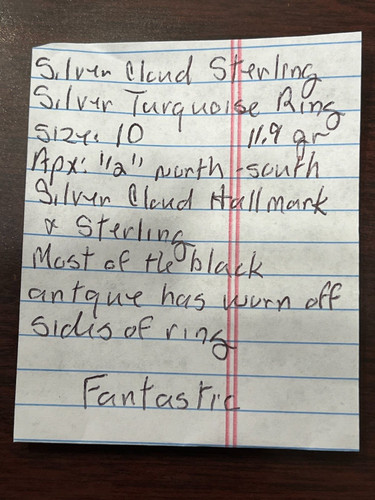 Silver Cloud Sterling
Silver Turquoise Ring
Size: 10 11.9 gr
Apx: "1/2" north-south
Silver Cloud Hallmark
& Sterling
Most of the black
antque has worn off
sides of ring
Fantastic